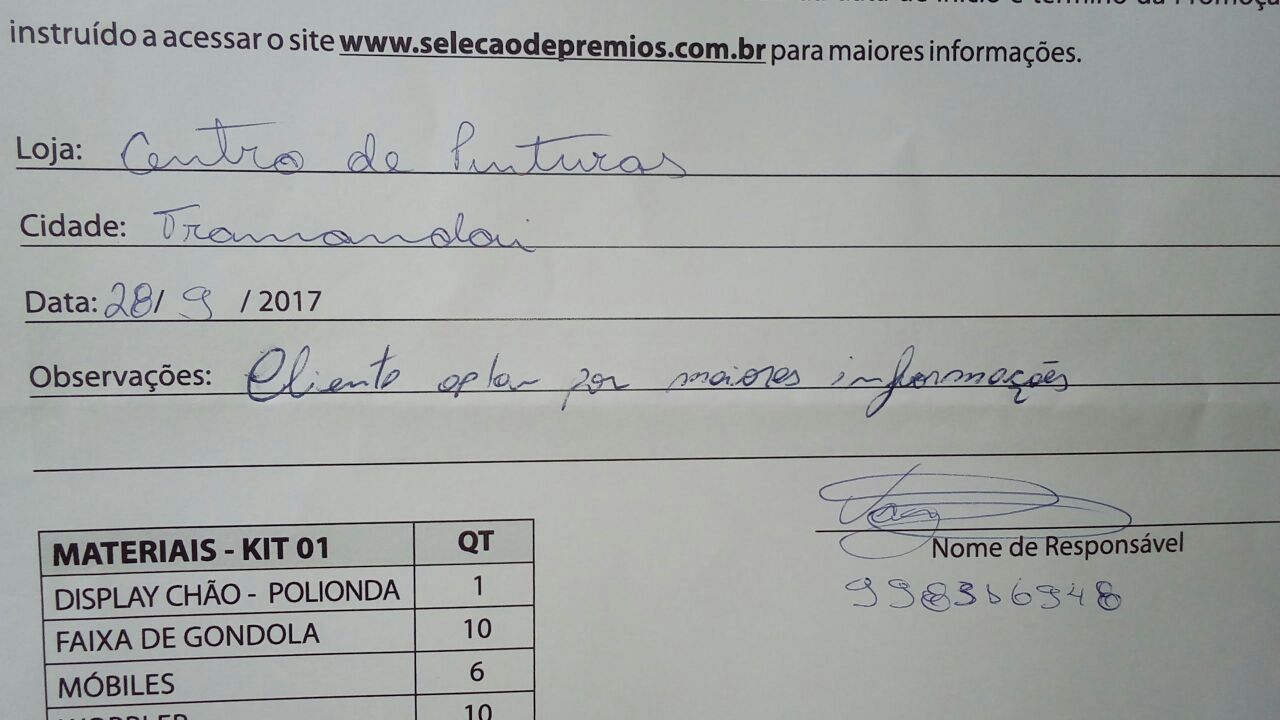 instruído a acessar o site www.selecaodepremios.com.br para maiores informações.
Loja: Centro de Pinturas
Cidade: Tramandai
Data: 28/ 9 / 2017
Observações: Cliente optou por maiores informações
Nome de Responsável
MATERIAIS - KIT 01 QT
DISPLAY CHÃO - POLIONDA 1
FAIXA DE GONDOLA 10
MÓBILES 6
WOBBLER 10